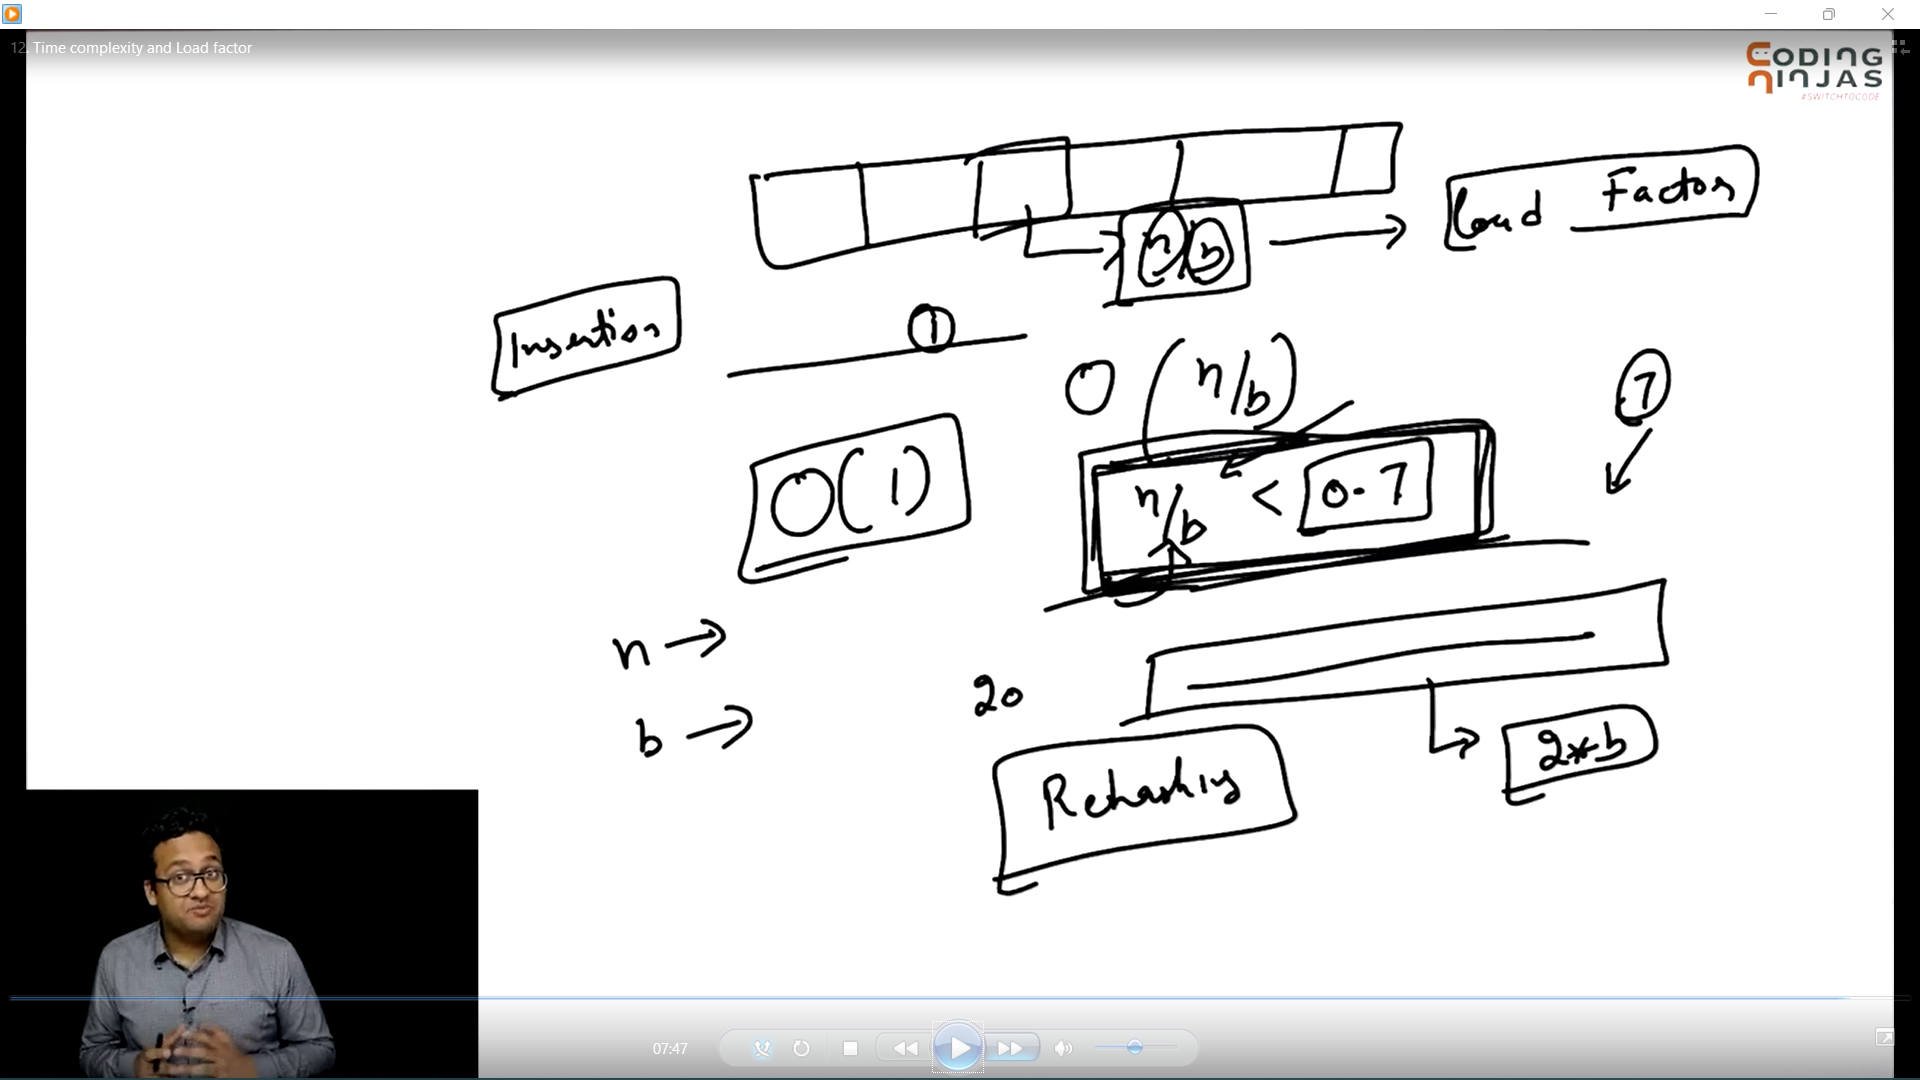 12. Time complexity and Load factor
CODING
NINJAS
#SWITCHTOCODE
Load Factor
n/b
Insertion
1
O(n/b)
7
O(1)
n/b < 0.7
n →
20
b →
2*b
Rehashing
07:47